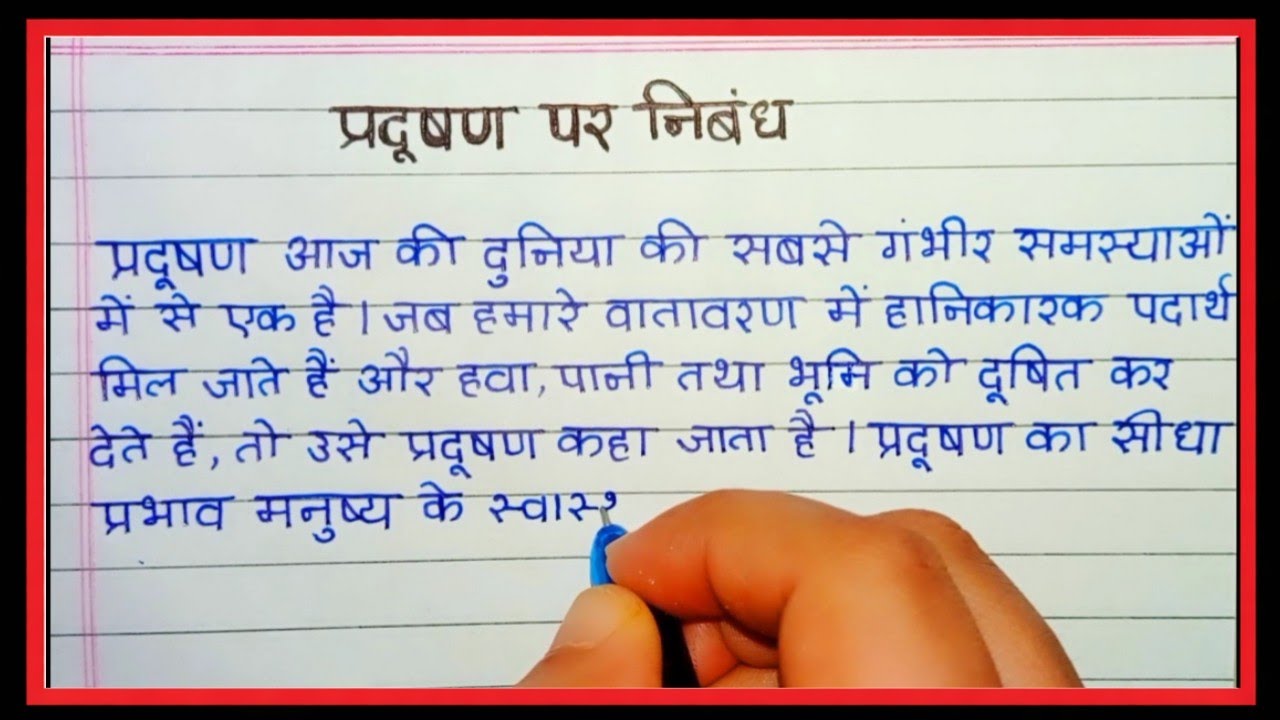 प्रदूषण पर निबंध
प्रदूषण आज की दुनिया की सबसे गंभीर समस्याओं
में से एक है । जब हमारे वातावरण में हानिकारक पदार्थ
मिल जाते हैं और हवा, पानी तथा भूमि को दूषित कर
देते हैं, तो उसे प्रदूषण कहा जाता है । प्रदूषण का सीधा
प्रभाव मनुष्य के